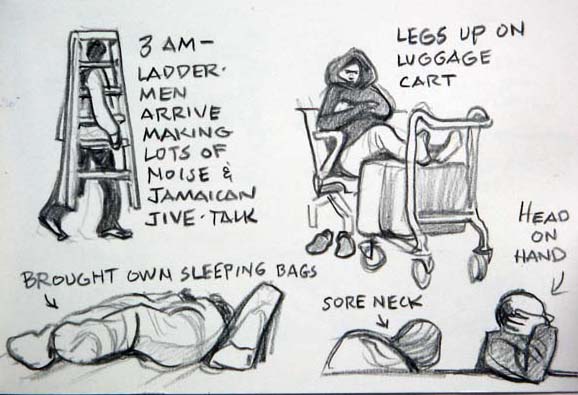 3 AM—
LADDER-
MEN
ARRIVE
MAKING
LOTS OF
NOISE &
JAMAICAN
JIVE-TALK
LEGS UP ON
LUGGAGE
CART
BROUGHT OWN SLEEPING BAGS
SORE NECK
HEAD
ON
HAND